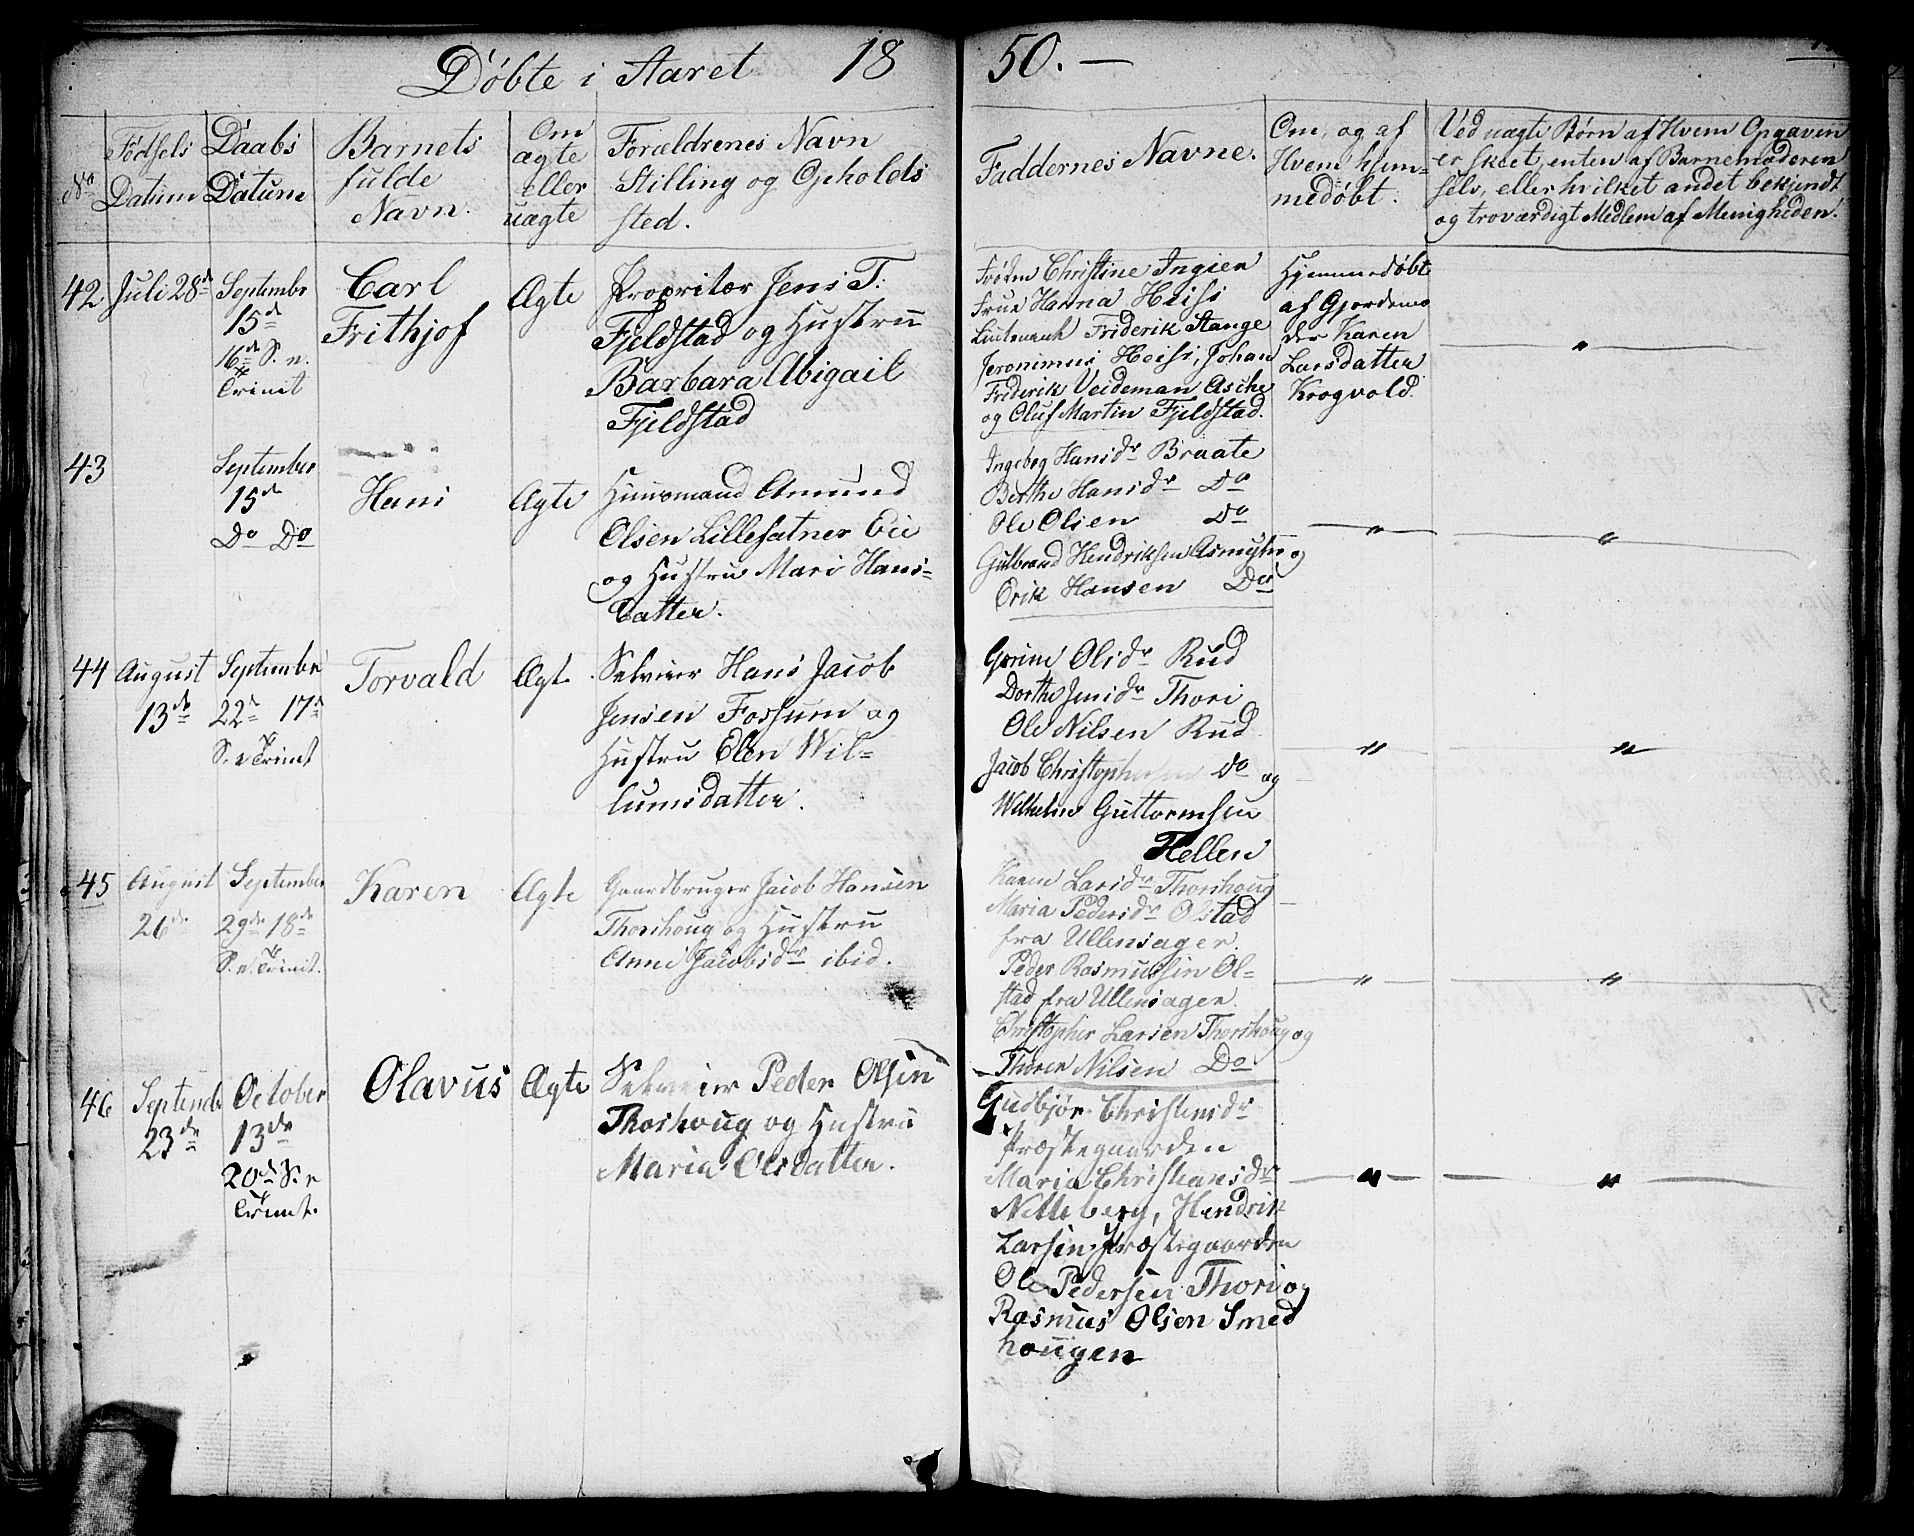 Døbte i Aaret 1850. —
No
Fødsels
Datum
Daabs
Datum
Barnets
fulde
Navn.
Om
ægte
eller
uægte
Forældrenes Navn
Stilling og Opholds
sted.
Faddernes Navne.
Om, og af
Hvem hjem-
medøbt.
Ved uægte Børn af Hvem Opgaven
er skeet, enten af Barnemoderen
selv, eller hvilket andet bekjendt
og troværdigt Medlem af Menigheden.
42
Juli 28de
Septembr
15de
16de S. e.
Trinit
Carl
Frithjof
Ægte
Propritær Jens T.
Fjeldstad og Hustru
Barbara Abigail
Fjeldstad
Frøken Christine Ingier
Frue Hanna Heiss
Lieutenant Friderik Stange
Jeronimus Heiss, Johan
Friderik Veideman Asche
og Oluf Martin Fjeldstad.
Hjemmedøbt
af Gjordemo
der Karen
Larsdatter
Krogvold.
"
43
September
15de
Do Do
Hans
Ægte
Huusmand Amund
Olsen Lillesætner Eie
og Hustru Mari Hans-
datter.
Ingebog Hansdr Braate
Berthe Hansdr Do
Ole Olsen Do
Gulbrand Hendriksen Asmyhr og
Erik Hansen Do
" "
44
August
13de
September
22de 17de
S. e Trinit
Torvald
Ægte
Selveier Hans Jacob
Jensen Fossum og
Hustru Elen Wil-
lumsdatter.
Grine Olsdr Rud
Dorthe Jensdr Thori
Ole Nilsen Rud
Jacob Christophersen Do og
Wilhelm Guttormsen
Hellen
" "
45
August
26de
September
29de 18de
S. e. Trinit.
Karen
Ægte
Gaardbruger Jacob Hansen
Thorshoug og Hustru
Anne Jacobsdr ibid.
Karen Larsdr Thorshoug
Maria Pedersdr Olstad
fra Ullensager.
Peder Rasmussen Ol-
stad fra Ullensager.
Christopher Larsen Thorshoug og
Thoren Nilsen Do
" "
46
Septembr
23de
October
13de
20de S. e
Trinit.
Olavus
Ægte
Selveier Peder Olsen
Thorshoug og Hustru
Maria Olsdatter.
Gudbjør Christensdr
Præstegaarden
Maria Christiansdr
Netteberg, Hendrik
Larsen Præstegaarden
Ole Pedersen Thori og
Rasmus Olsen Smed
hougen
" "